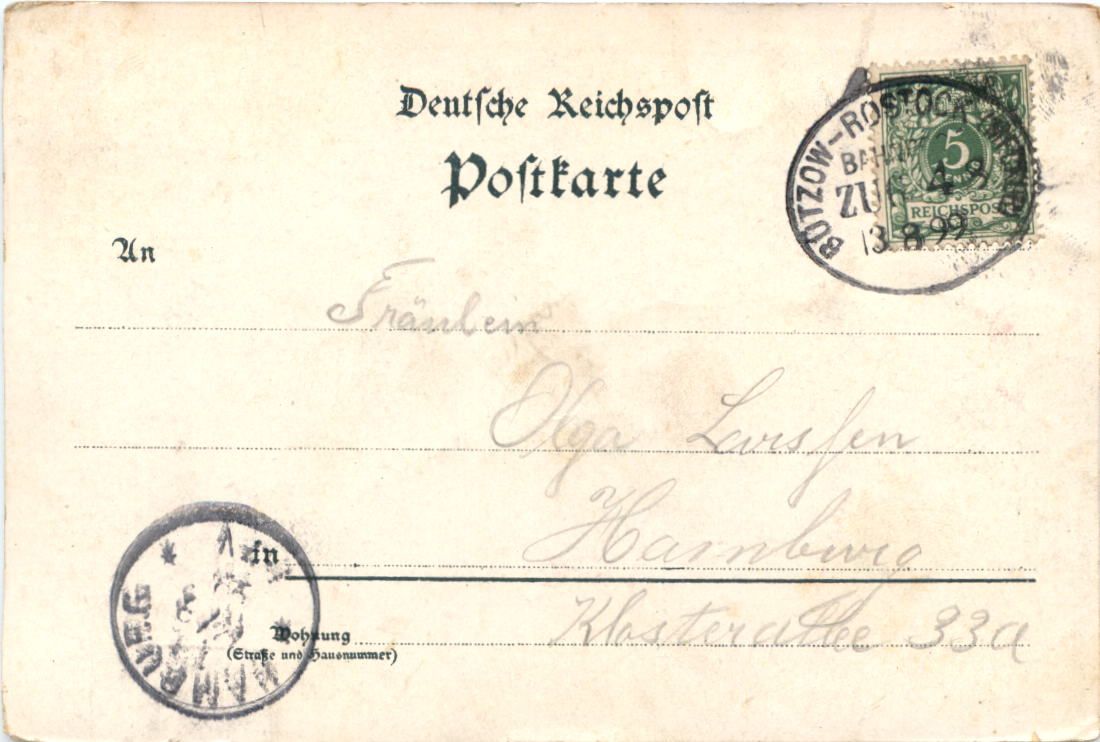 Deutsche Reichspost
Postkarte
BÜTZOW-ROSTOCK
BAHNPOST
ZUG 4
13 8 99
5
REICHSPOST
An
Fräulein
Olga
Hamburg
in
Klosterallee 33a
Wohnung
(Straße und Hausnummer)
HAMBURG